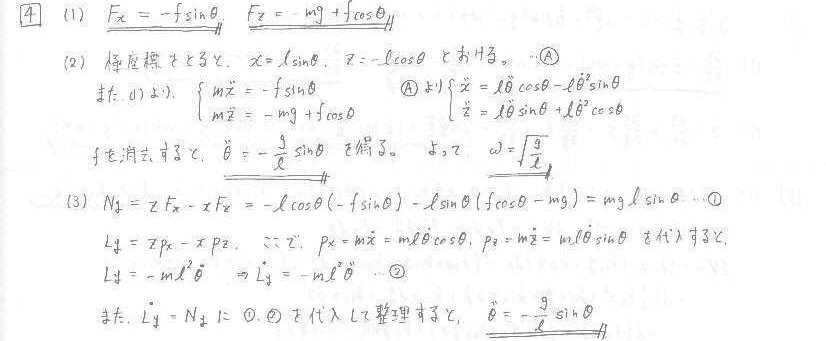 4 (1) Fx = -f sinθ. Fz = -mg + f cosθ
(2) 極座標をとると、 x = l sinθ, z = -l cosθ とおける。 …Ⓐ
また、(1)より、 { mẍ = -f sinθ Ⓐより { ẍ = lθ̈ cosθ - lθ̇² sinθ
mz̈ = -mg + f cosθ z̈ = lθ̈ sinθ + lθ̇² cosθ
fを消去すると、 θ̈ = -g/l sinθ を得る。 よって ω = √(g/l)
(3) Ny = zFx - xFz = -l cosθ(-f sinθ) - l sinθ(f cosθ - mg) = mg l sinθ …①
Ly = zpx - xpz. ここで、 px = mẋ = mlθ̇ cosθ, pz = mż = mlθ̇ sinθ を代入すると、
Ly = -ml²θ̇ ⇒ L̇y = -ml²θ̈ …②
また、 L̇y = Ny に ①,② を代入して整理すると、 θ̈ = -g/l sinθ